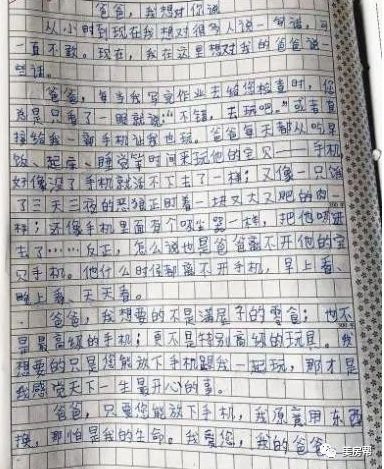 爸爸,我想对你说
从小时到现在我想对很多人说一句话,可
一直不敢。现在,我在这里想对我的爸爸说一
些话。
爸爸,每当我写完作业去给您检查时,您
总是只看了一眼就说:“不错,去玩吧。”或者直
接给我一部手机让我也玩。爸爸每天都从吃早
饭、起床、睡觉等时间来玩他的宝贝——手机,
好像没了手机就活不下去了一样;又像一只饿
了三天三夜的恶狼正盯着一块又大又肥的肉一
样;还像手机里面有个吸尘器一样,把他吸进
去了……反正,怎么说也是爸爸离不开他的宝
贝手机。他什么时候都离不开手机,早上看、
晚上看、天天看。
爸爸,我想要的不是满屋子的零食;也不
是最高级的手机;更不是特别高级的玩具。我
想要的只是您能放下手机跟我一起玩,那才是
我感觉天下一生最开心的事。
爸爸,只要您能放下手机,我原意用东西
换,那怕是我的生命。我爱您,我的爸爸